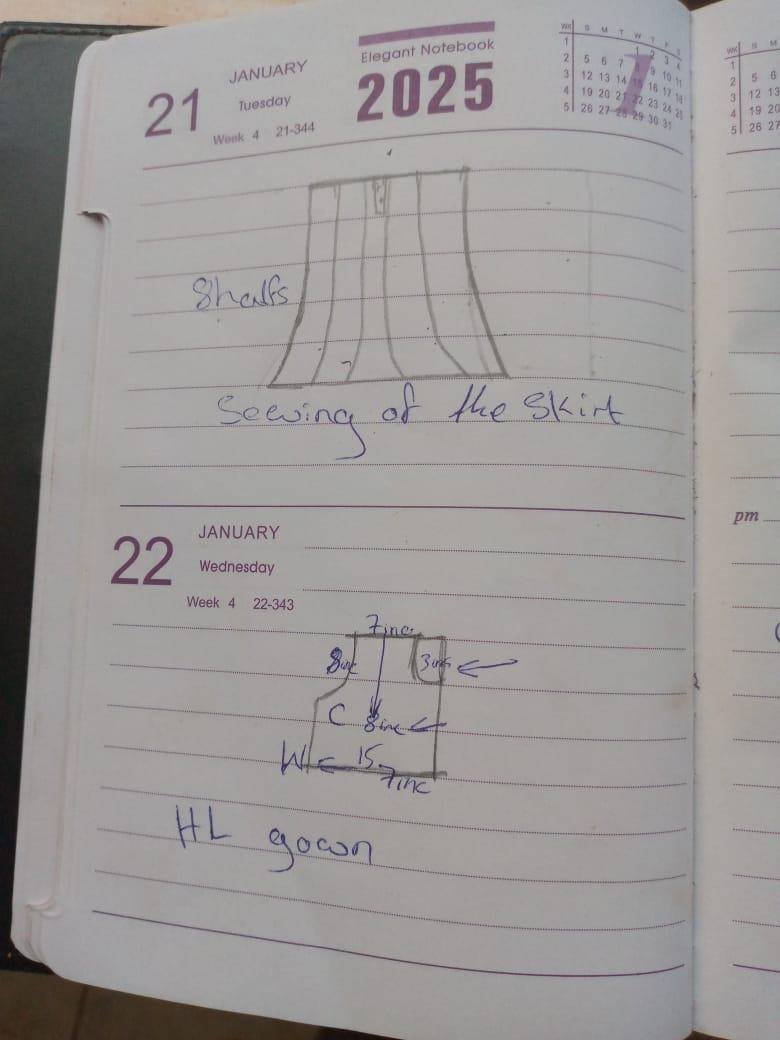 21
JANUARY
Tuesday
Week 4 21-344
Elegant Notebook
2025
WK S M T W T F S
1 1 2 3 4
2 5 6 7 9 10 11
3 12 13 14 15 16 17 18
4 19 20 21 22 23 24 25
5 26 27 28 29 30 31
WK S M
1
2 5 6
3 12 13
4 19 20
5 26 27
Shalfs
Sewing of the Skirt
22
JANUARY
Wednesday
Week 4 22-343
pm
7inc
8inc
3inc
C 8inc
W 15
7inc
HL gown